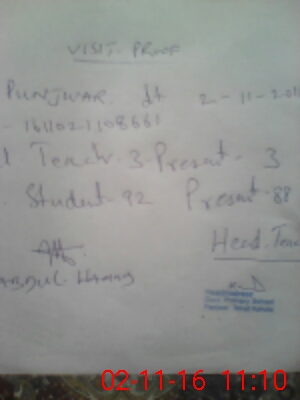 VISIT. PROOF
PUNJWAR dt 2-11-201
- 161102-1108661
Teach-3-Present- 3
Student-92 Present-88
Head.Tea
ABDUL HAMID
Govt Primary School
02-11-16 11:10